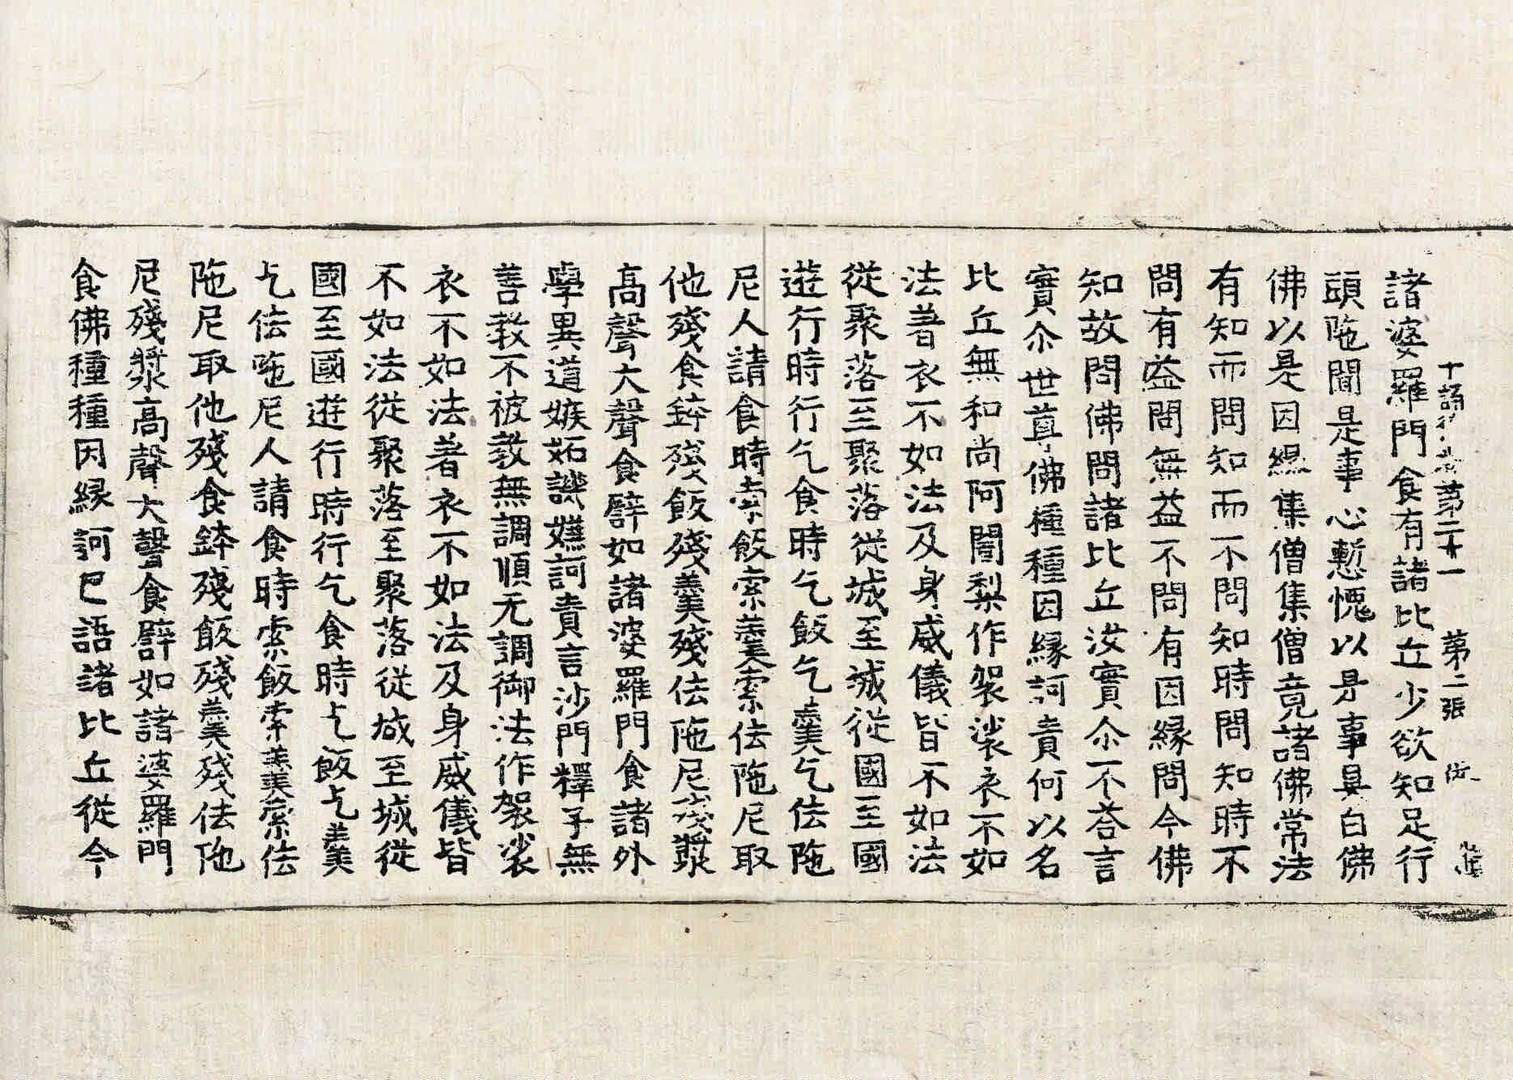 第二十一 第二張
諸婆羅門食有諸比丘少欲知足行
頭陁聞是事心慙愧以是事具白佛
佛以是因縁集僧集僧竟諸佛常法
有知而問知而不問知時問知時不
問有益問無益不問有因縁問今佛
知故問佛問諸比丘汝實尒不荅言
實尒世尊佛種種因縁訶責何以名
比丘無和尚阿闍梨作袈裟衣不如
法著衣不如法及身威儀皆不如法
從聚落至聚落從城至城從國至國
遊行時行乞食時乞飯乞羹乞佉陁
尼人請食時索飯索羹索佉陁尼取
他殘食鉢殘飯殘羹殘佉陁尼殘漿
高聲大聲食譬如諸婆羅門食諸外
學異道嫉妬譏嫌訶責言沙門釋子無
善教不被教無調順无調御法作袈裟
衣不如法著衣不如法及身威儀皆
不如法從聚落至聚落從城至城從
國至國遊行時行乞食時乞飯乞羹
乞佉陁尼人請食時索飯索羹索佉
陁尼取他殘食鉢殘飯殘羹殘佉陁
尼殘漿高聲大聲食譬如諸婆羅門
食佛種種因縁訶已語諸比丘從今